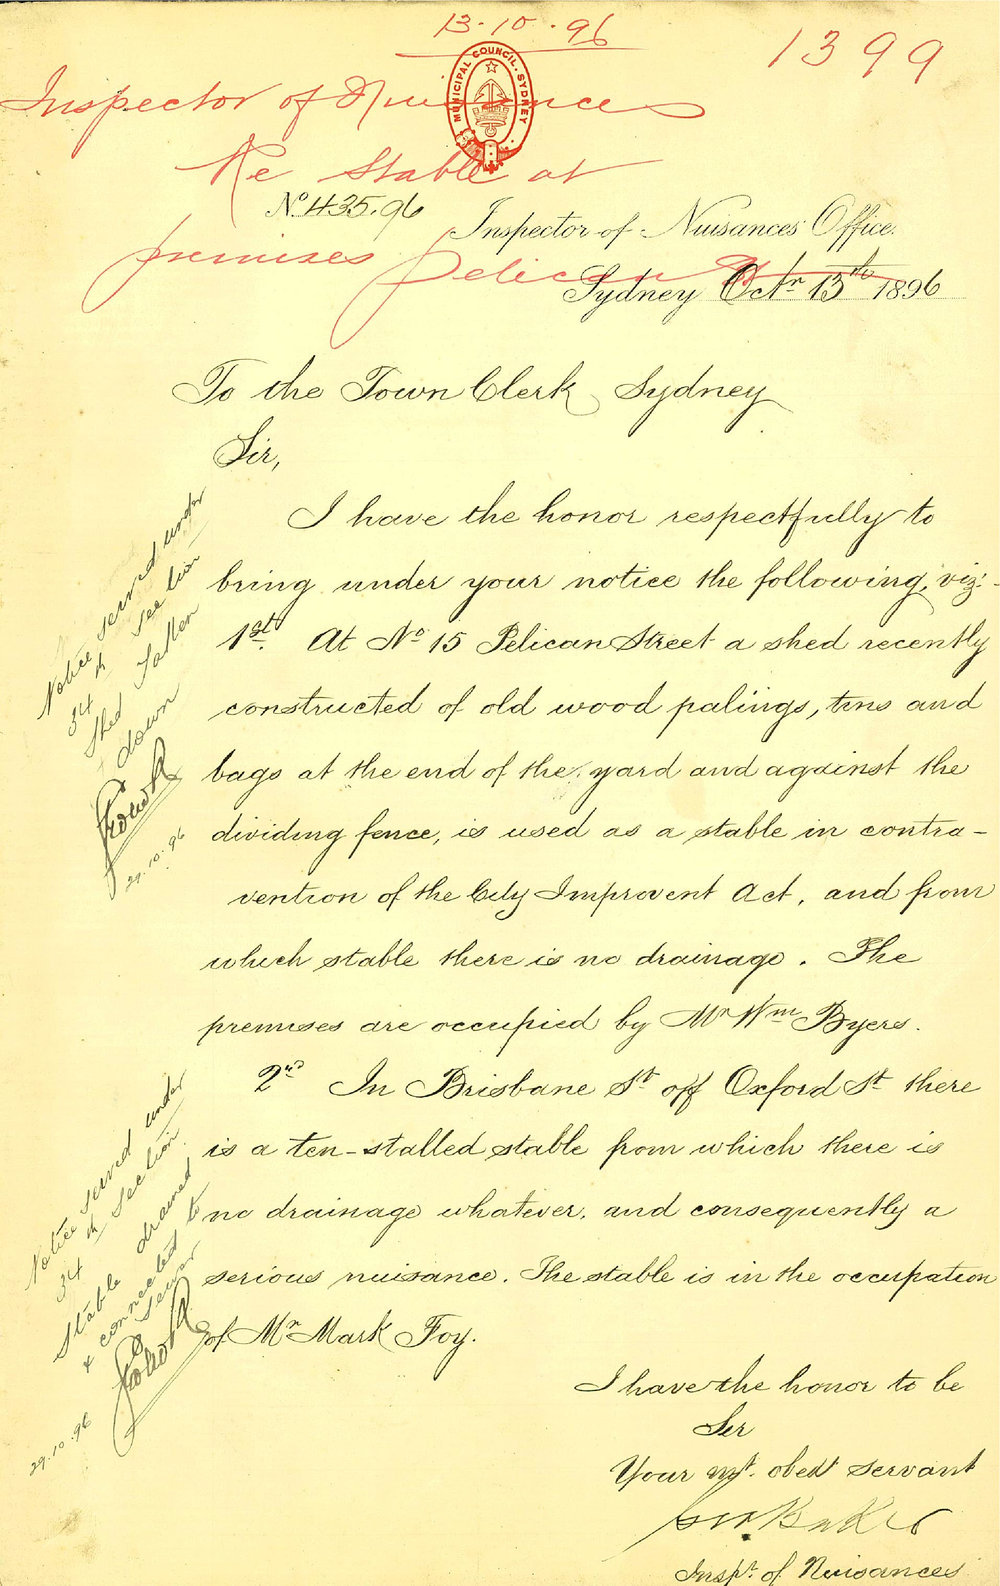 13.10.96
1399
MUNICIPAL COUNCIL. SYDNEY
Inspector of Nuisances
Re Stable at
premises Pelican St
No. 435.96
Inspector of Nuisances Office.
Sydney Octr 13th 1896
To the Town Clerk, Sydney
Sir,
I have the honor respectfully to
bring under your notice the following, viz:-
1st. At No 15 Pelican Street a shed recently
constructed of old wood palings, tins and
bags at the end of the yard and against the
dividing fence, is used as a stable in contra-
vention of the City Improvent Act, and from
which stable there is no drainage. The
premises are occupied by Mr Wm Byers.
2nd In Brisbane St off Oxford St there
is a ten-stalled stable from which there is
no drainage whatever, and consequently a
serious nuisance. The stable is in the occupation
of Mr Mark Foy.
I have the honor to be
Sir
Your mst. obedt servant
Baker
Inspt. of Nuisances
Notice served under
34th Section
Shed Taken
down
29.10.96
Notice served under
34th Section
Stable drained
& connected to
Sewer
29.10.96